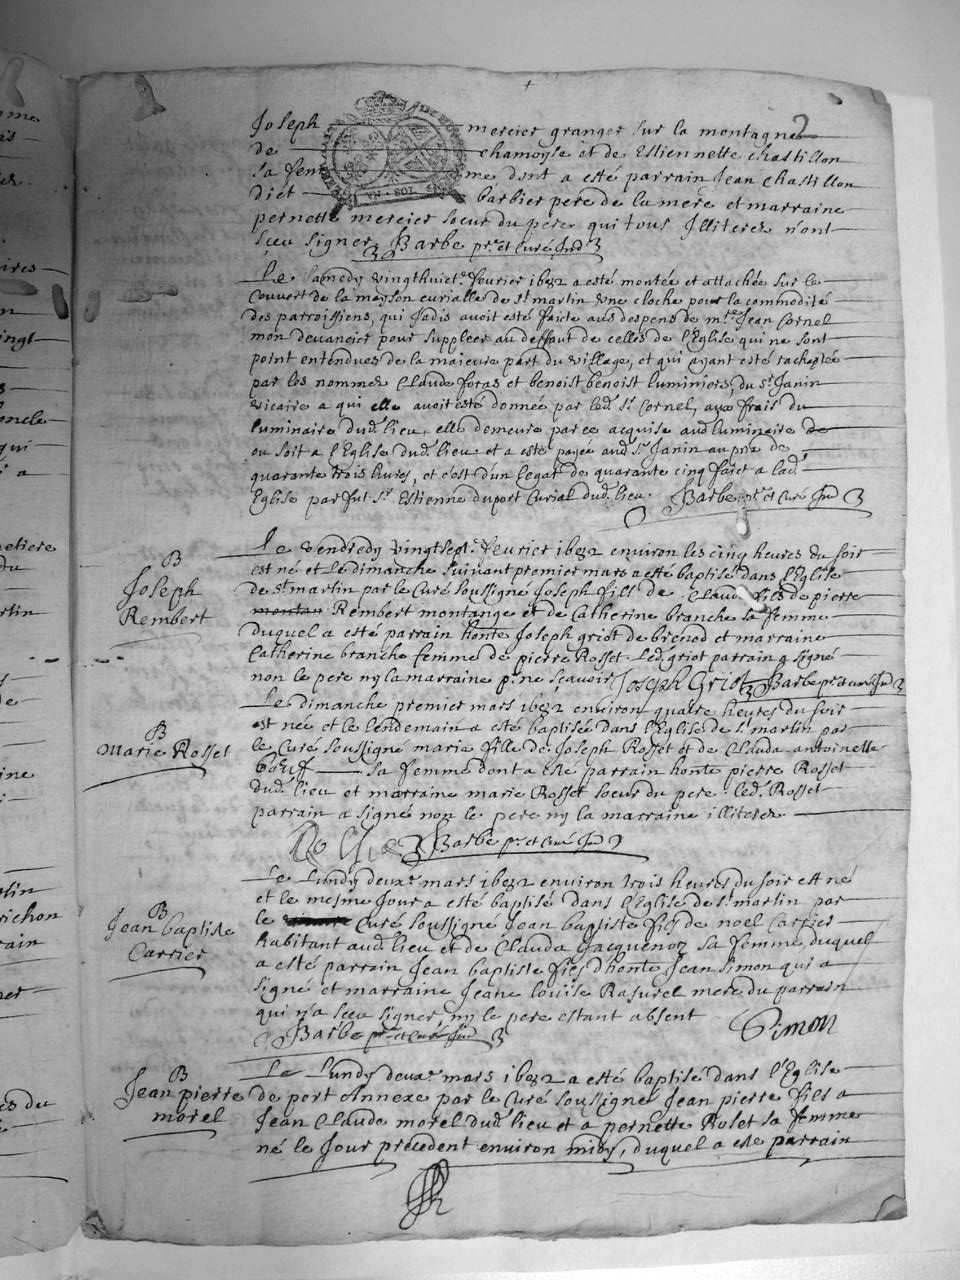 2
Joseph mercier granger sur la montagne
de chamoyse et de Estiennette chastillon
sa femme dont a esté parrain Jean chastillon
dict barbier pere de la mere et marraine
pernette mercier soeur du pere qui tous Illiterez n'ont
sceu signer Barbe pr. et Curé
Le Samedy vingthuict.e febvrier 1682 a esté montée et attachée sur le
Couvert de la mayson curialle de st martin une cloche pour la commodité
des parroissiens, qui Jadis avoit esté faicte aus despens de m.re Jean Cornel
mon devancier pour suppleer au deffaut de celles de l'Eglise qui ne sont
point entendues de la majeure part du village, et qui ayant esté racheptée
par les nommez Claude foras et benoist benoist luminiers, du sr Janin
vicaire a qui elle avoit esté donnée par led. sr Cornel, aux frais du
luminaire dud. lieu, elle demeure par ce acquise aud luminaire de
ou soit a l'Eglise dud. lieu et a esté payée aud sr Janin au prix de
quarante trois livres, et c'est d'un legat de quarante cinq faict a lad.
Eglise par fut sr Estienne duport Curial dud. lieu. Barbe pr. et Curé
B
Joseph
Rembert
Le vendredy vingtsept.e feuvrier 1682 environ les cinq heures du soir
est né et le dimanche suivant premier mars a esté baptisé dans l'Eglise
de st martin par le Curé soussigné Joseph fils de Claude fils de pierre
Rembert montange et de Catherine branche sa femme
duquel a esté parrain honte Joseph griot de brenod et marraine
Catherine branche femme de pierre Rosset. Led. griot parrain a signé
non le pere ny la marraine p. ne sçavoir Joseph Griot Barbe pr et curé
B
Marie Rosset
Le dimanche premier mars 1682 environ quatre heures du soir
est née et le lendemain a esté baptisée dans l'Eglise de st martin par
le Curé soussigné marie fille de Joseph Rosset et de Clauda antoinette
boeuf sa femme dont a esté parrain honte pierre Rosset
dud. lieu et marraine marie Rosset soeur du pere led. Rosset
parrain a signé non le pere ny la marraine illiterez
Barbe pr. et Curé
B
Jean baptiste
Carrier
Le Lundy deuxe mars 1682 environ trois heures du soir est né
et le mesme Jour a esté baptisé dans l'Eglise de st martin par
le Curé soussigné Jean baptiste fils de noel Carrier
habitant aud lieu et de Clauda Jacquenoz sa femme, duquel
a esté parrain Jean baptiste fils d'honte Jean simon qui a
signé et marraine Jeane louise Rasurel mere du parrain
qui n'a sceu signer, ny le pere estant absent
Simon
Barbe pr. et Curé
B
Jean pierre
morel
Le Lundy deuxe mars 1682 a esté baptisé dans l'Eglise
de port Annexe par le Curé soussigné Jean pierre fils a
Jean Claude morel dud. lieu et a pernette Roset sa femme
né le Jour precedent environ midy, duquel a esté parrain